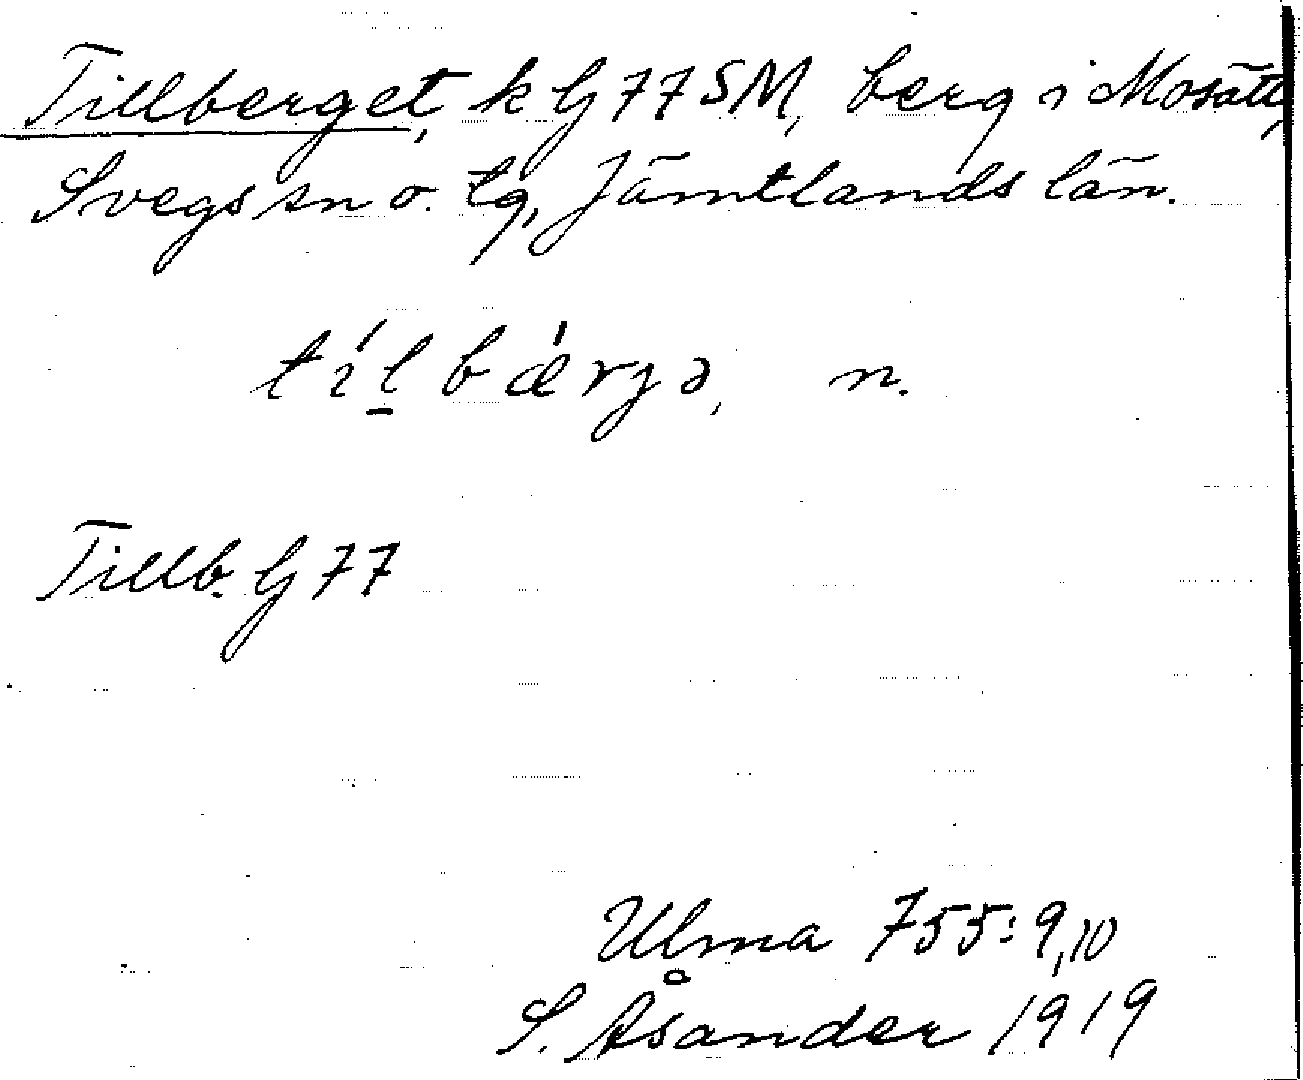 Tillberget, k G 77 SM, berg i Mosätt,
Svegs sn o. tg, Jämtlands län.
tíl̠bǽrgə, n.
Tillb. G 77
Ulma 755:9,10
S. Åsander 1919